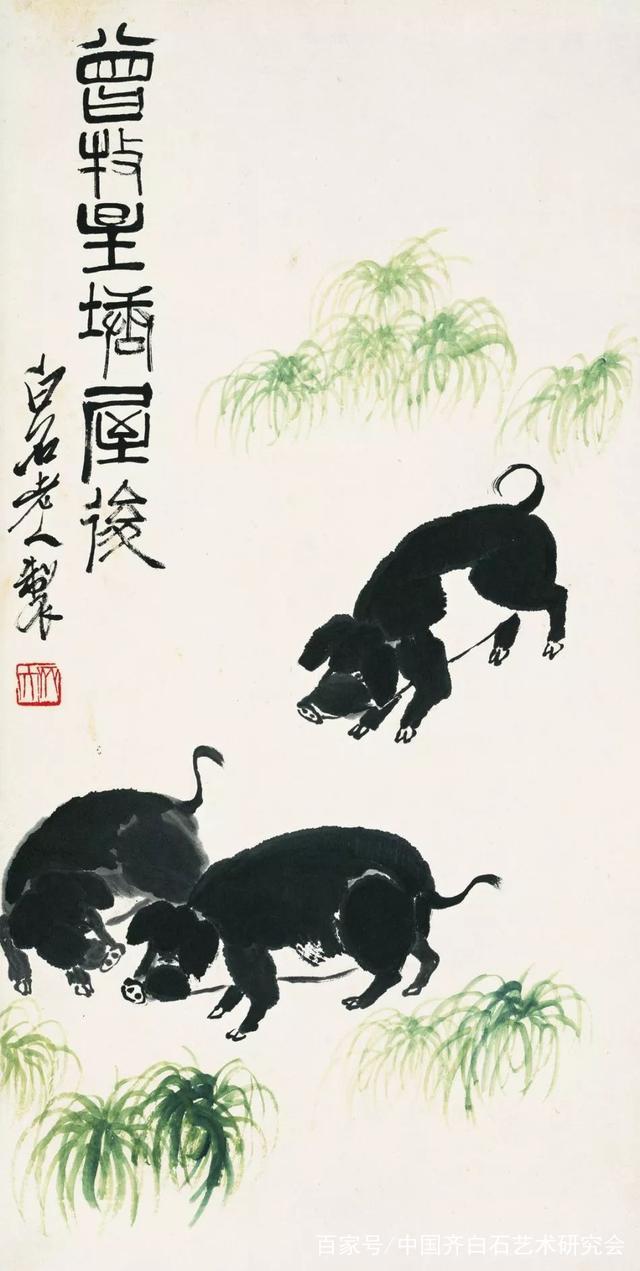 曾牧星塘屋後
白石老人製
木人
百家号/中国齐白石艺术研究会